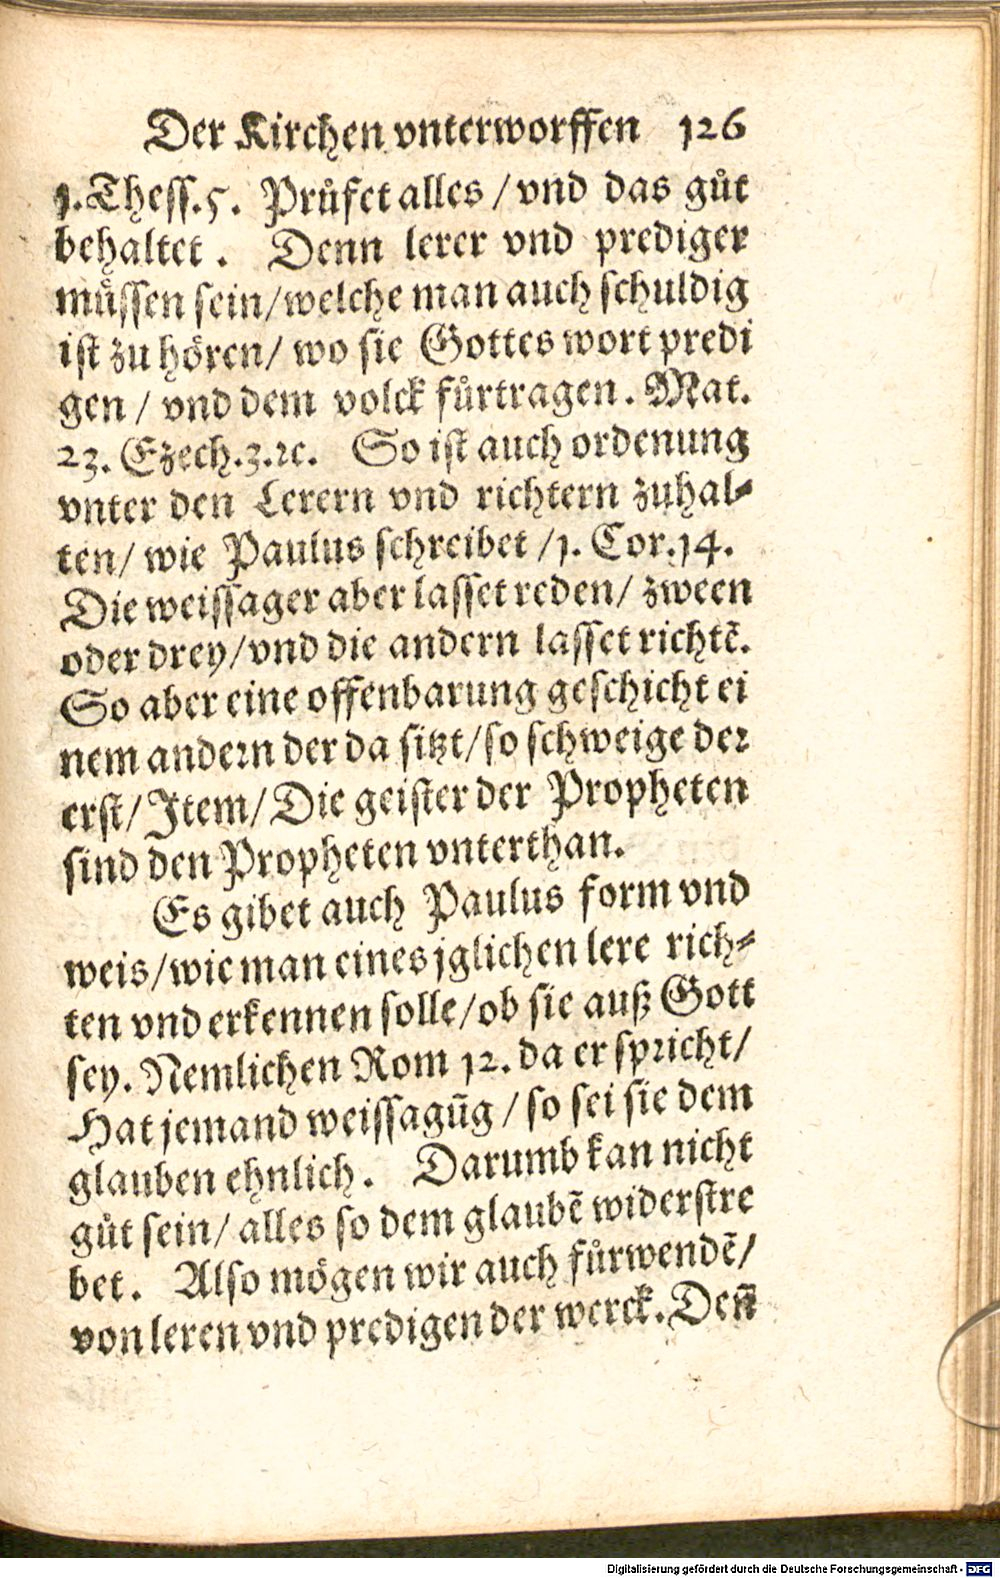 Der Kirchen vnterworffen 126
1.Thess.5. Pruͤfet alles / vnd das guͤt
behaltet. Denn lerer vnd prediger
muͤssen sein/welche man auch schuldig
ist zu hoͤren/ wo sie Gottes wort predi
gen / vnd dem volck fuͤrtragen. Mat.
23. Ezech.3.ꝛc. So ist auch ordenung
vnter den Lerern vnd richtern zuhal⸗
ten/ wie Paulus schreibet /1. Cor.14.
Die weissager aber lasset reden/ zween
oder drey/vnd die andern lasset richtẽ.
So aber eine offenbarung geschicht ei
nem andern der da sitzt/so schweige der
erst/Item/Die geister der Propheten
sind den Propheten vnterthan.
Es gibet auch Paulus form vnd
weis/wie man eines jglichen lere rich⸗
ten vnd erkennen solle/ob sie auß Gott
sey. Nemlichen Rom 12. da er spricht/
Hat jemand weissagũg / so sei sie dem
glauben ehnlich. Darumb kan nicht
guͤt sein/ alles so dem glaubẽ widerstre
bet. Also moͤgen wir auch fuͤrwendẽ/
von leren vnd predigen der werck. Deñ
Digitalisierung gefördert durch die Deutsche Forschungsgemeinschaft - DFG